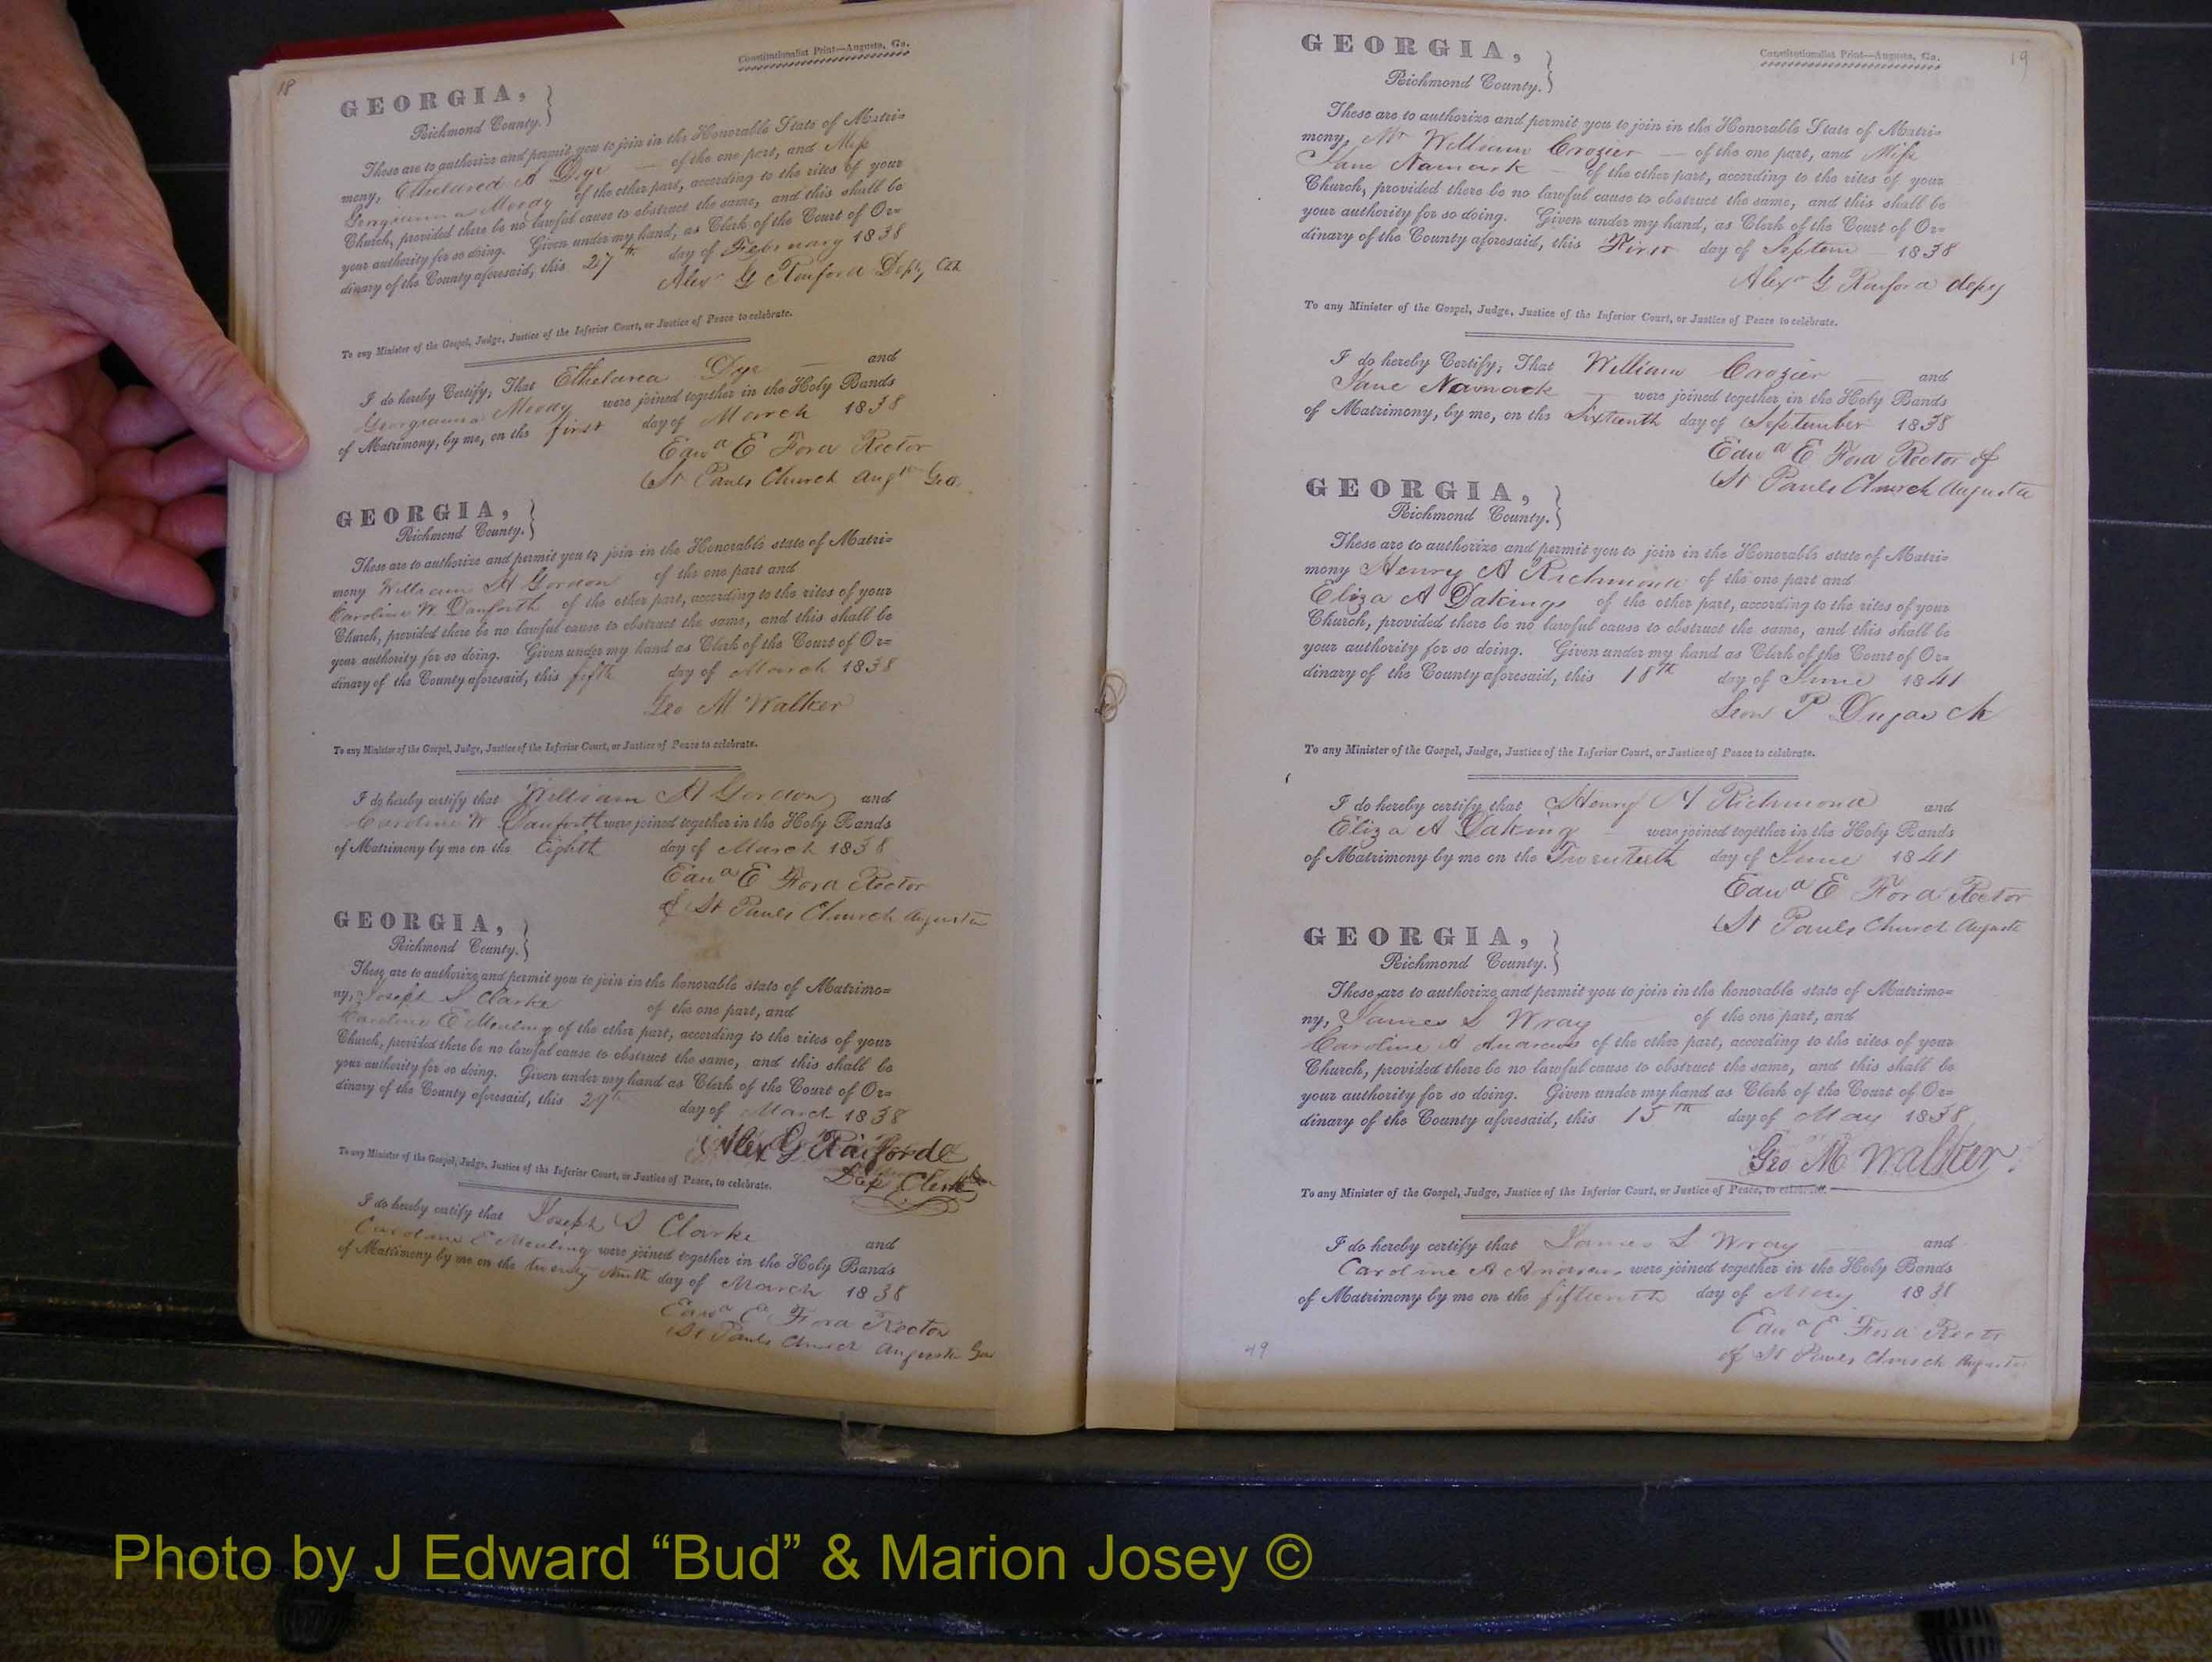 18
Constitutionalist Print—Augusta, Ga.
GEORGIA,
Richmond County.
These are to authorize and permit you to join in the Honorable State of Matri=
mony, Ethelared A Dye — of the one part, and Miss
Georgianna Moody of the other part, according to the rites of your
Church, provided there be no lawful cause to obstruct the same, and this shall be
your authority for so doing. Given under my hand, as Clerk of the Court of Or=
dinary of the County aforesaid, this 27th day of February 1838
Alexr G Raiford Depty Clk
To any Minister of the Gospel, Judge, Justice of the Inferior Court, or Justice of Peace to celebrate.
I do hereby Certify, That Ethelared Dye — and
Georgianna Moody were joined together in the Holy Bands
of Matrimony, by me, on the first day of March 1838
Edwd E Ford Rector
St Pauls Church Augta Geo.
GEORGIA,
Richmond County.
These are to authorize and permit you to join in the Honorable state of Matri=
mony William H Gordon of the one part and
Caroline W. Danforth of the other part, according to the rites of your
Church, provided there be no lawful cause to obstruct the same, and this shall be
your authority for so doing. Given under my hand as Clerk of the Court of Or=
dinary of the County aforesaid, this fifth day of March 1838
Geo M Walker
To any Minister of the Gospel, Judge, Justice of the Inferior Court, or Justice of Peace to celebrate.
I do hereby certify that William H Gordon and
Caroline W Danforth were joined together in the Holy Bands
of Matrimony by me on the Eighth day of March 1838
Edwd E Ford Rector
of St Pauls Church Augusta
GEORGIA,
Richmond County.
These are to authorize and permit you to join in the honorable state of Matrimo=
ny, Joseph S Clarke of the one part, and
Caroline E Meuling of the other part, according to the rites of your
Church, provided there be no lawful cause to obstruct the same, and this shall be
your authority for so doing. Given under my hand as Clerk of the Court of Or=
dinary of the County aforesaid, this 29th day of March 1838
Alex G Raiford
Dep Clerk
To any Minister of the Gospel, Judge, Justice of the Inferior Court, or Justice of Peace, to celebrate.
I do hereby certify that Joseph S Clarke and
Caroline E Meuling were joined together in the Holy Bands
of Matrimony by me on the twenty ninth day of March 1838
Edwd E Ford Rector
St Pauls Church Augusta Geo
19
Constitutionalist Print—Augusta, Ga.
GEORGIA,
Richmond County.
These are to authorize and permit you to join in the Honorable State of Matri=
mony, Mr William Crozier — of the one part, and Miss
Jane Namack — of the other part, according to the rites of your
Church, provided there be no lawful cause to obstruct the same, and this shall be
your authority for so doing. Given under my hand, as Clerk of the Court of Or=
dinary of the County aforesaid, this First day of Septem — 1838
Alexr G Raiford depy
To any Minister of the Gospel, Judge, Justice of the Inferior Court, or Justice of Peace to celebrate.
I do hereby Certify, That William Crozier — and
Jane Namack — were joined together in the Holy Bands
of Matrimony, by me, on the Sixteenth day of September 1838
Edwd E Ford Rector of
St Pauls Church Augusta
GEORGIA,
Richmond County.
These are to authorize and permit you to join in the Honorable state of Matri=
mony Henry A Richmond of the one part and
Eliza A Dakings of the other part, according to the rites of your
Church, provided there be no lawful cause to obstruct the same, and this shall be
your authority for so doing. Given under my hand as Clerk of the Court of Or=
dinary of the County aforesaid, this 18th day of June 1841
Leon P Dugas Ck
To any Minister of the Gospel, Judge, Justice of the Inferior Court, or Justice of Peace to celebrate.
I do hereby certify that Henry A Richmond and
Eliza A Daking — were joined together in the Holy Bands
of Matrimony by me on the Twentieth day of June 1841
Edwd E Ford Rector
St Pauls Church Augusta
GEORGIA,
Richmond County.
These are to authorize and permit you to join in the honorable state of Matrimo=
ny, James S Wray of the one part, and
Caroline A Andrews of the other part, according to the rites of your
Church, provided there be no lawful cause to obstruct the same, and this shall be
your authority for so doing. Given under my hand as Clerk of the Court of Or=
dinary of the County aforesaid, this 15th day of May 1838
Geo M Walker.
To any Minister of the Gospel, Judge, Justice of the Inferior Court, or Justice of Peace, to celebrate.
I do hereby certify that James S Wray — and
Caroline A Andrews were joined together in the Holy Bands
of Matrimony by me on the fifteenth day of May 1838
Edwd E Ford Rector
of St Pauls Church Augusta
49
Photo by J Edward “Bud” & Marion Josey ©